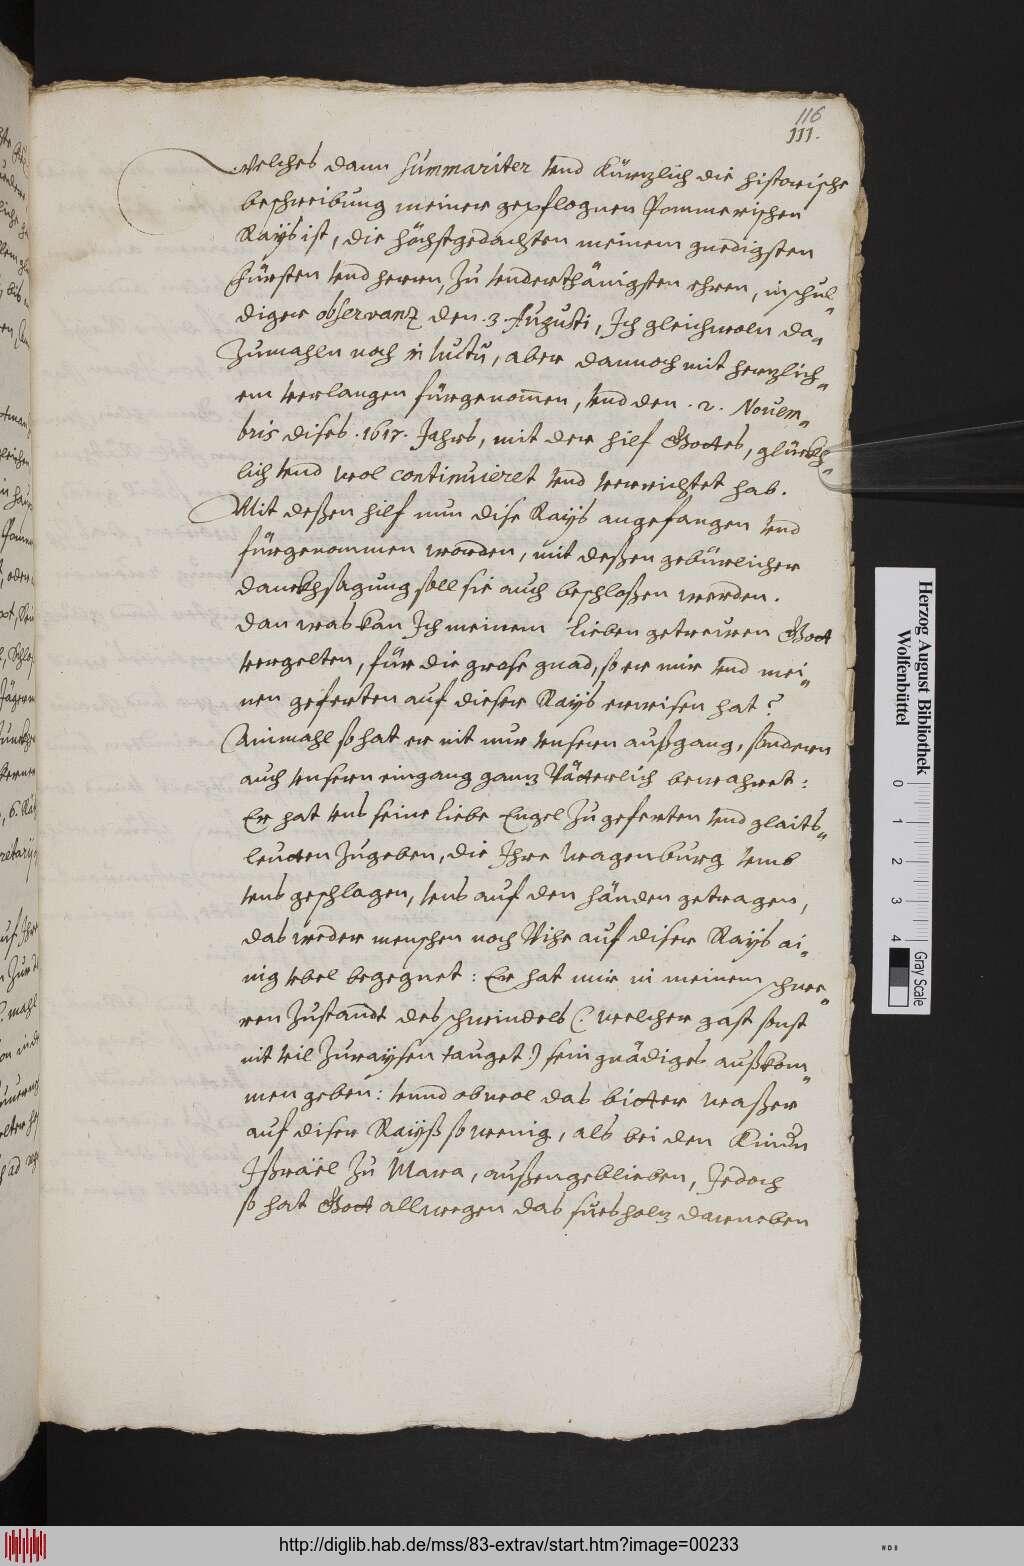 116
111.
welches dann summariter vnd Kürzlich die historische
beschreibung meiner gepflognen Pommerischen
Rayß ist, die höchstgedachten meinem gnedigsten
Fürsten vnd herrn, zu vnderthänigsten ehren, in schul„
diger observanz den .3. Augusti, Ich gleichwoln da„
Zumahln noch in luctu, aber dannoch mit herzlich„
em verlangen fürgenom̅en, vnd den .2. Novem„
bris dises .1617. Jahrs, mit der hilf Gottes, glückh„
lich vnd wol continuieret vnd verrichtet hab.
Mit deßen hilf nun dise Rayß angefangen vnd
fürgenommen worden, mit deßen gebürlicher
danckhsagung soll sie auch beschloßen werden.
dan was kan Ich meinem lieben getrewen Gott
vergelten, für die grose gnad, so er mir vnd mei„
nen geferten auf dieser Rayß erwisen hat?
Ainmahl so hat er nit nur vnsern außgang, sondern
auch vnsern eingang ganz Vätterlich bewahret:
Er hat vns seine liebe Engel zu geferten vnd glaits„
leutten zugeben, die Ihre wagenburg vmb
vns geschlagen, vns auf den händen getragen,
das weder menschen noch Vihe auf diser Rayß ai„
nig vbel begegnet: Er hat mir in meinem schwe„
ren Zustandt des schwindels (: welcher gast sonst
nit vil zuraysen tauget :) sein gnädiges außkom„
men geben: vnnd obwol das bitter waßer
auf diser Rayß so wenig, als bei den Kindern
Ißraël zu Mara, außengeblieben, Jedoch
so hat Gott allwegen das sues holz darneben
Herzog August Bibliothek
Wolfenbüttel
0 1 2 3 4
Gray Scale
http://diglib.hab.de/mss/83-extrav/start.htm?image=00233